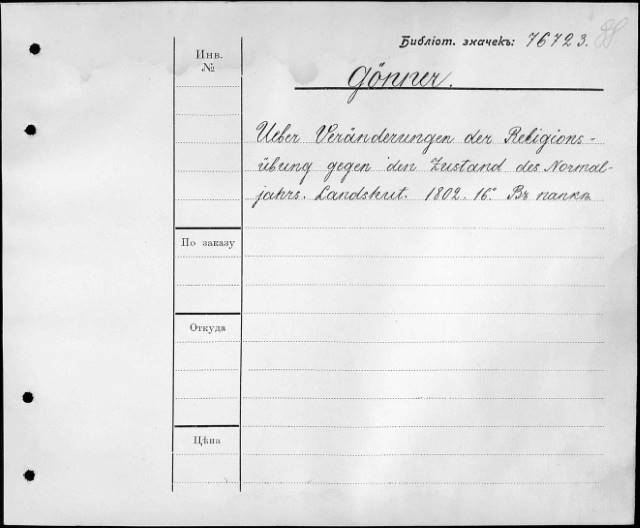 Библіот. значекъ: 76723.
Инв.
№
Gönner.
Ueber Veränderungen der Religions-
übung gegen den Zustand des Normal-
jahrs. Landshut. 1802. 16°. Въ папкѣ
По заказу
Откуда
Цѣна